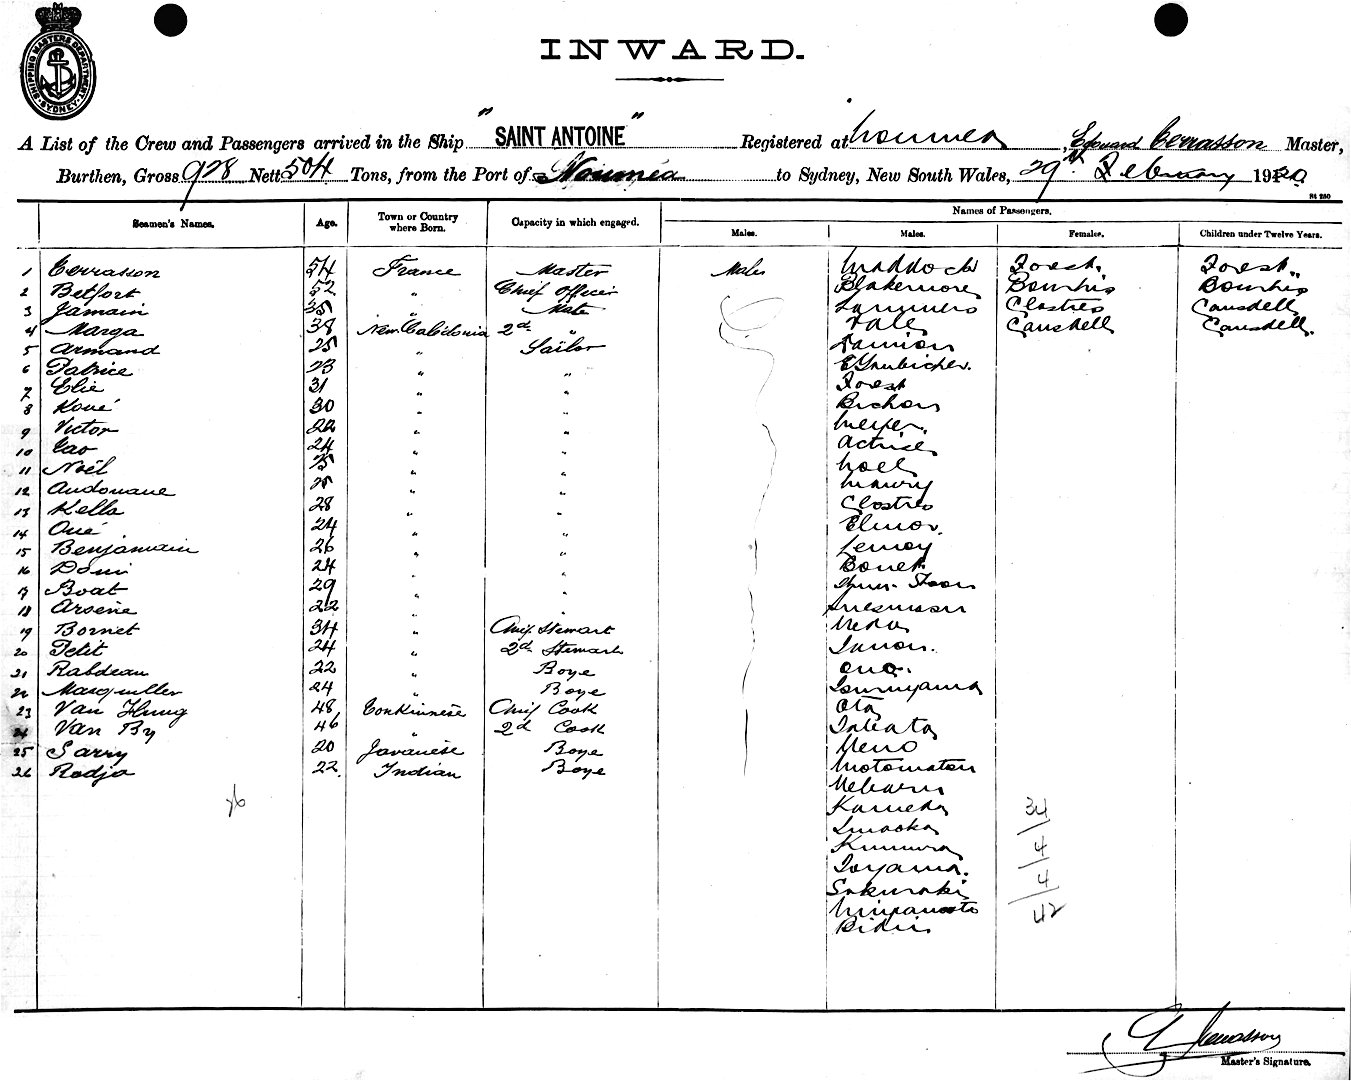 SHIPPING MASTERS DEPARTMENT SYDNEY
INWARD.
A List of the Crew and Passengers arrived in the Ship "SAINT ANTOINE" Registered at Noumea, Edouard Cerrasson Master,
Burthen, Gross 928 Nett 504 Tons, from the Port of Nouméa to Sydney, New South Wales, 29th February 1920
Seamen's Names. Age. Town or Country where Born. Capacity in which engaged. Names of Passengers.
Males. Males. Females. Children under Twelve Years.
1 Cerrasson 54 France Master Males Maddock Forest. Forest.
2 Betfort 52 " Chief Officer Blakemore Bourhis Bourhis
3 Jamain 35 " Mate Lammers Clostres Caudell
4 Marga 38 New Caledonia 2d " Tale Caudell Caudell.
5 Armand 25 " Sailor
6 Patrice 23 " "
7 Elie 31 " " Forest
8 Koué 30 " " Bichon
9 Victor 22 " " Meyer.
10 Cao 24 " "
11 Noël 25 " " Noel
12 Andouane 25 " " Maury
13 Kella 28 " " Clostres
14 Oué 24 " " Elmor.
15 Benjamain 26 " " Leroy
16 Doui 24 " " Bonet
17 Boat 29 " "
18 Arsène 22 " "
19 Bornet 34 " Chif. Stewart
20 Petit 24 " 2d Stewart
21 Rabdeau 22 " Boye Ono.
22 Marquiller 24 " Boye
23 Van Hung 48 Tonkinnese Chif Cook Ota
24 Van By 46 " 2d Cook
25 Sarry 20 Javanese Boye Ueno
26 Rodja 22. Indian Boye Motomaton
26 Kameda 34
Kimura 4
Toyama. 4
Sakuraki
Miyamoto 42
Master's Signature.